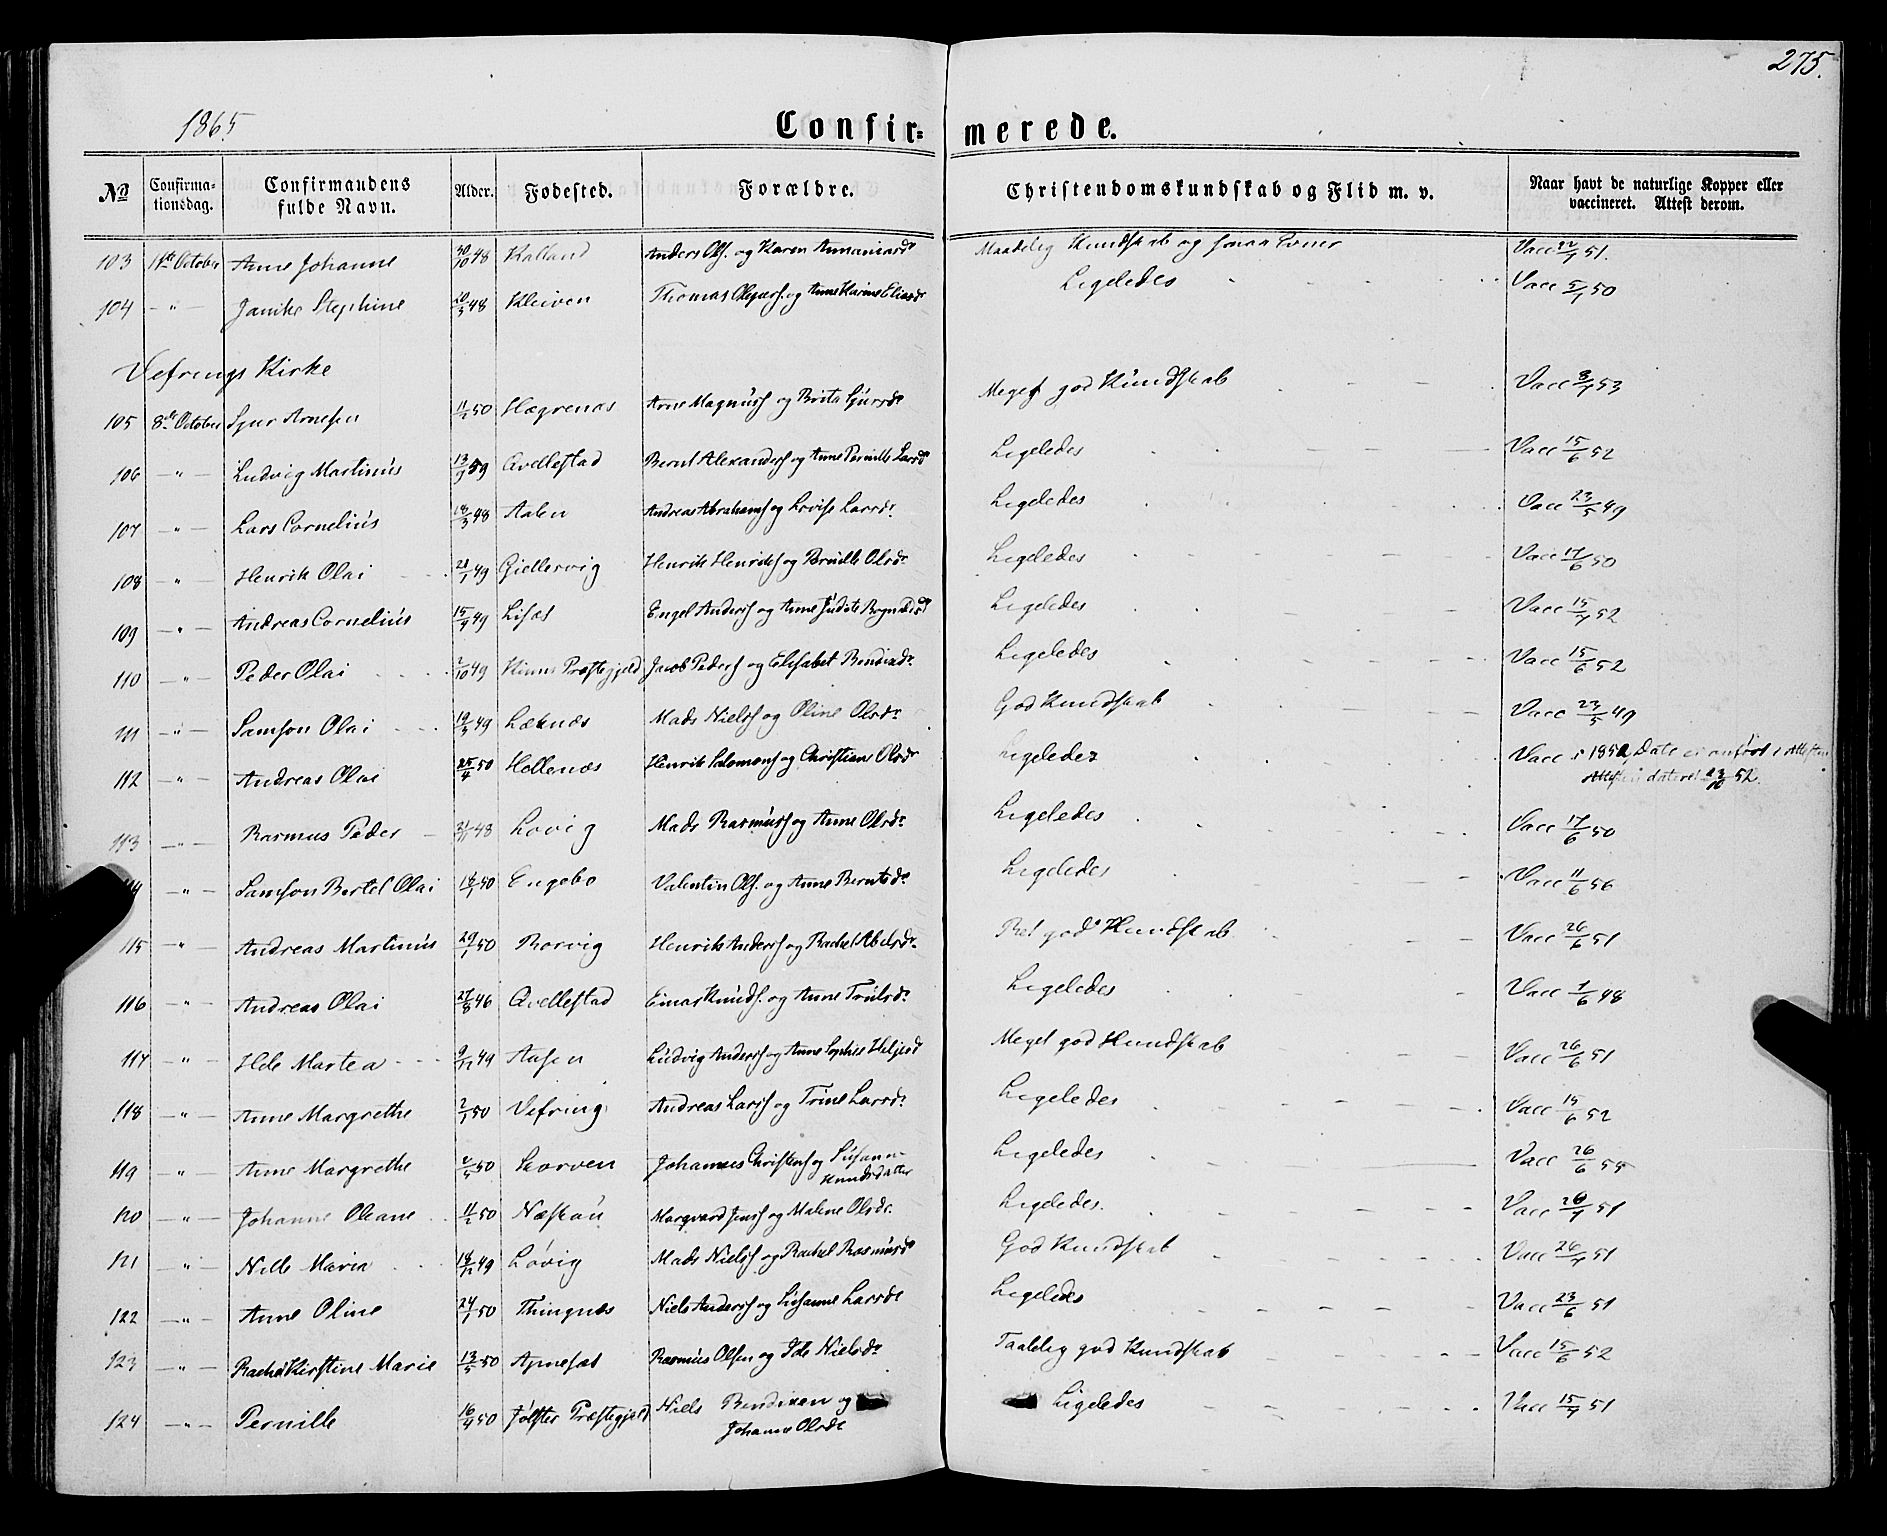 275.
1865
Confir= merede.
No Confirma-tionsdag. Confirmandens fulde Navn. Alder. Fødested. Forældre. Christendomskundskab og Flid m. v. Naar havt de naturlige Kopper eller vaccineret. Attest derom.
103 1ste October Anne Johanne 30/10 48 Kalland Anders Ols. og Karen Ananiasdr Maadelig Kundskab og Vacc 22/7 51.
104 — " — Janike Stephine 20/3 48 Kleiven Thomas og Anne Karine Eliasdr Ligeledes Vacc 5/7 50
Vefrings Kirke
105 8de October Sjur Arnesen 11/2 50 Hægrenæs Arne Magnuss og Brita Sjursdr Meget god Kundskab Vacc 8/7 53
106 — " — Ludvig Martinus 13/9 59 Qvellestad Bernt Alexanders og Anne Pernille Larsdr Ligeledes Vacc 15/6 52
107 — " — Lars Cornelius 18/3 48 Aalen Andreas Abrahams og Lovise Larsdr Ligeledes Vacc 23/5 49
108 — " — Henrik Olai 21/1 49 Gjellervig Henrik Henriks og Pernille Olsdr Ligeledes Vacc 17/6 50
109 — " — Andreas Cornelius 15/4 49 Lisæt Engel Anders og Anne Judite Ligeledes Vacc 15/7 52
110 — " — Peder Olai 2/10 49 Kinns Præstegjeld Jacob Peders og Elisabet Bendixdr Ligeledes Vacc 15/6 52
111 — " — Samson Olai 19/3 49 Løknæs Mads Niels og Oline Olsdr God Kundskab Vacc 23/5 49
112 — " — Andreas Olai 25/4 50 Hellenæs Henrik Salomons og Christiane Olsdr Ligeledes Vacc i 1852, Date ei anført i Attesten
Attesten dateret 23/10 52.
113 — " — Rasmus Peder 21/11 48 Løvig Mads Rasmuss og Anne Olsdr Ligeledes Vacc 17/6 50
— " — Samson Bertel Olai 18/1 50 Engebø Valentin Ols. og Anne Berntsdr Ligeledes Vacc 11/6 56
115 — " — Andreas Martinus 29/1 50 Rørvig Henrik Anders og Rachel Abelsdr Ret god Kundskab Vacc 26/6 51
116 — " — Andreas Olai 27/8 46 Qvellestad Einar Knuds. og Anne Trulsdr Ligeledes Vacc 1/6 48
117 — " — Ilde Martea 9/12 49 Aasen Ludvig Anders og Anne Sophie Meget god Kundskab Vacc 26/6 51
118 — " — Anne Margrethe 2/1 50 Vefring Andreas Lars og Trine Larsdr Ligeledes Vacc 15/6 52
119 — " — Anne Margrethe 2/5 50 Skorven Johannes Christens og Susanne
Knudsdatter Ligeledes Vacc 26/6 55
120 — " — Johanne Oleane 11/2 50 Næstøu Marqvard Jens og Malene Olsdr. Ligeledes. Vacc 26/7 51
121 — " — Nille Maria 18/12 49 Løvig Mads Niels og Rachel Rasmusdr God Kundskab Vacc 26/7 51
122 — " — Anne Oline 24/1 50 Thingnæs Niels Anders og Susanne Larsdr Ligeledes Vacc 23/6 51
123 — " — Rachel Kirstine Marie 13/5 50 Apnesæt Rasmus Olsen og Ide Nielsdr Taalelig god Kundskab Vacc 15/6 52
124 — " — Pernille 16/4 50 Jølster Præstegjeld Niels Bendixen og
Johanne Olsdr Ligeledes Vacc 15/7 51